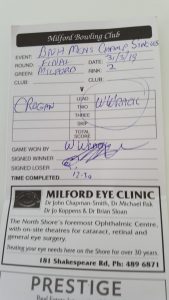 Milford Bowling Club
EVENT: BNH MENS CHAMP SINGLES
ROUND: FINAL DATE: 31/3/19
GREEN: MILFORD RINK: 2
CLUB: CLUB:
V
O'REGAN LEAD W WERNIC
TWO
THREE
SKIP
TOTAL SCORE
GAME WON BY
SIGNED WINNER
SIGNED LOSER
TIME COMPLETED 12-30
MILFORD EYE CLINIC
Dr John Chapman-Smith, Dr Michael Fisk
Dr Jo Koppens & Dr Brian Sloan
The North Shore's foremost Ophthalmic Centre,
with on-site theatres for cataract, retinal and
general eye surgery.
Treating your eye needs here on the Shore for over 30 years.
181 Shakespeare Rd, Ph: 489 6871
PRESTIGE